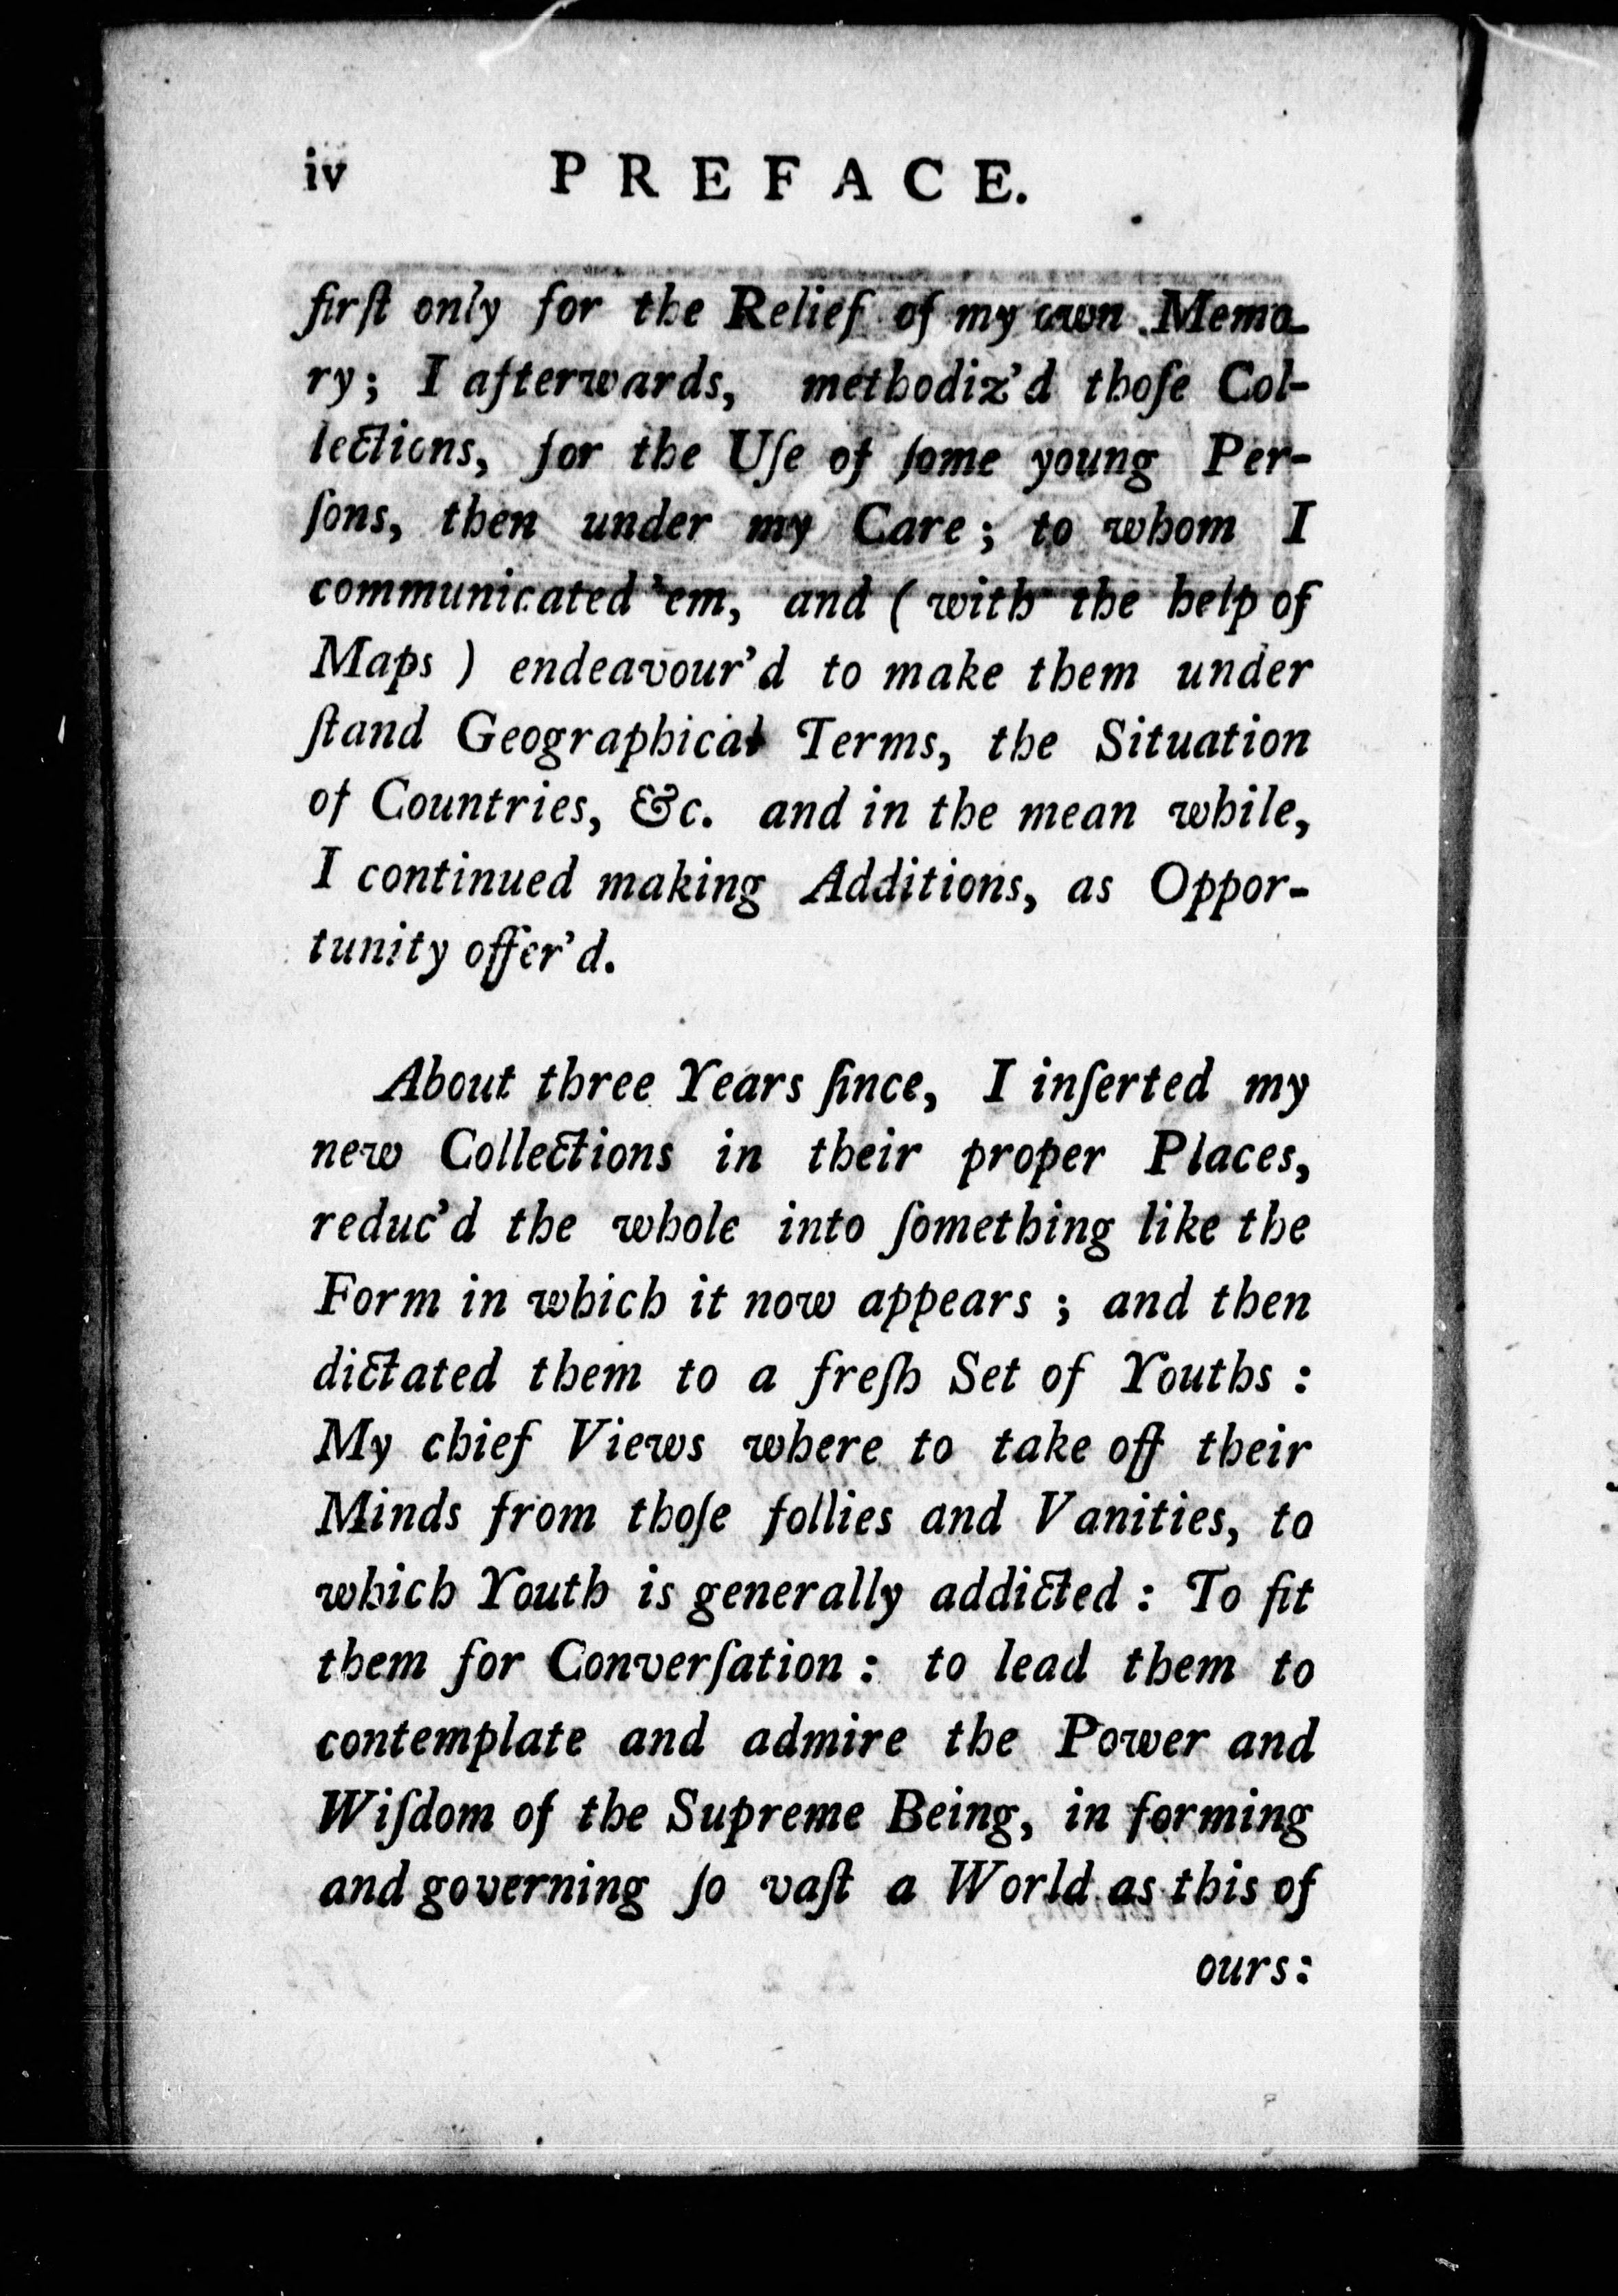 iv PREFACE.
firſt only for the Relief of my own Memo-
ry; I afterwards, methodiz'd thoſe Col-
lections, for the Uſe of ſome young Per-
ſons, then under my Care; to whom I
communicated 'em, and ( with the help of
Maps ) endeavour'd to make them under
ſtand Geographical Terms, the Situation
of Countries, &c. and in the mean while,
I continued making Additions, as Oppor-
tunity offer'd.
About three Years ſince, I inſerted my
new Collections in their proper Places,
reduc'd the whole into ſomething like the
Form in which it now appears ; and then
dictated them to a freſh Set of Youths :
My chief Views where to take off their
Minds from thoſe follies and Vanities, to
which Youth is generally addicted : To fit
them for Converſation : to lead them to
contemplate and admire the Power and
Wiſdom of the Supreme Being, in forming
and governing ſo vaſt a World as this of
ours: